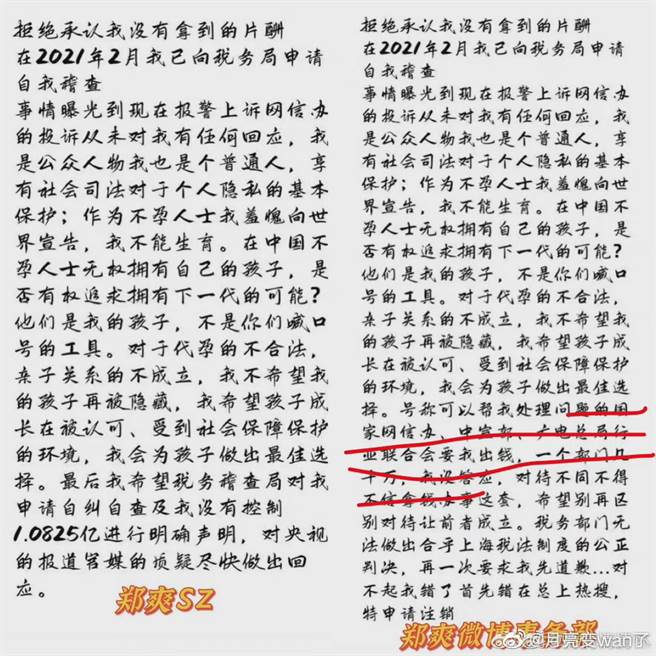 拒绝承认我没有拿到的片酬
在2021年2月我已向税务局申请
自我稽查
事情曝光到现在报警上诉网信办
的投诉从未对我有任何回应，我
是公众人物我也是个普通人，享
有社会司法对于个人隐私的基本
保护；作为不孕人士我羞愧向世
界宣告，我不能生育。在中国不
孕人士无权拥有自己的孩子，是
否有权追求拥有下一代的可能？
他们是我的孩子，不是你们喊口
号的工具。对于代孕的不合法，
亲子关系的不成立，我不希望我
的孩子再被隐藏，我希望孩子成
长在被认可、受到社会保障保护
的环境，我会为孩子做出最佳选
择。最后我希望税务稽查局对我
申请自纠自查及我没有控制
1.0825亿进行明确声明，对央视
的报道官媒的质疑尽快做出回
应。
郑爽SZ
拒绝承认我没有拿到的片酬
在2021年2月我已向税务局申请
自我稽查
事情曝光到现在报警上诉网信办
的投诉从未对我有任何回应，我
是公众人物我也是个普通人，享
有社会司法对于个人隐私的基本
保护；作为不孕人士我羞愧向世
界宣告，我不能生育。在中国不
孕人士无权拥有自己的孩子，是
否有权追求拥有下一代的可能？
他们是我的孩子，不是你们喊口
号的工具。对于代孕的不合法，
亲子关系的不成立，我不希望我
的孩子再被隐藏，我希望孩子成
长在被认可、受到社会保障保护
的环境，我会为孩子做出最佳选
择。号称可以帮我处理问题的国
家网信办、中宣部、广电总局行
业联合会要我出钱，一个部门几
十万，我没答应，对待不同不得
不信拿钱办事这套，希望别再区
别对待让前者成立。税务部门无
法做出合乎上海税法制度的公正
判决，再一次要求我先道歉...对
不起我错了首先错在总上热搜，
特申请注销
郑爽微博事务部
@月亮变wan了